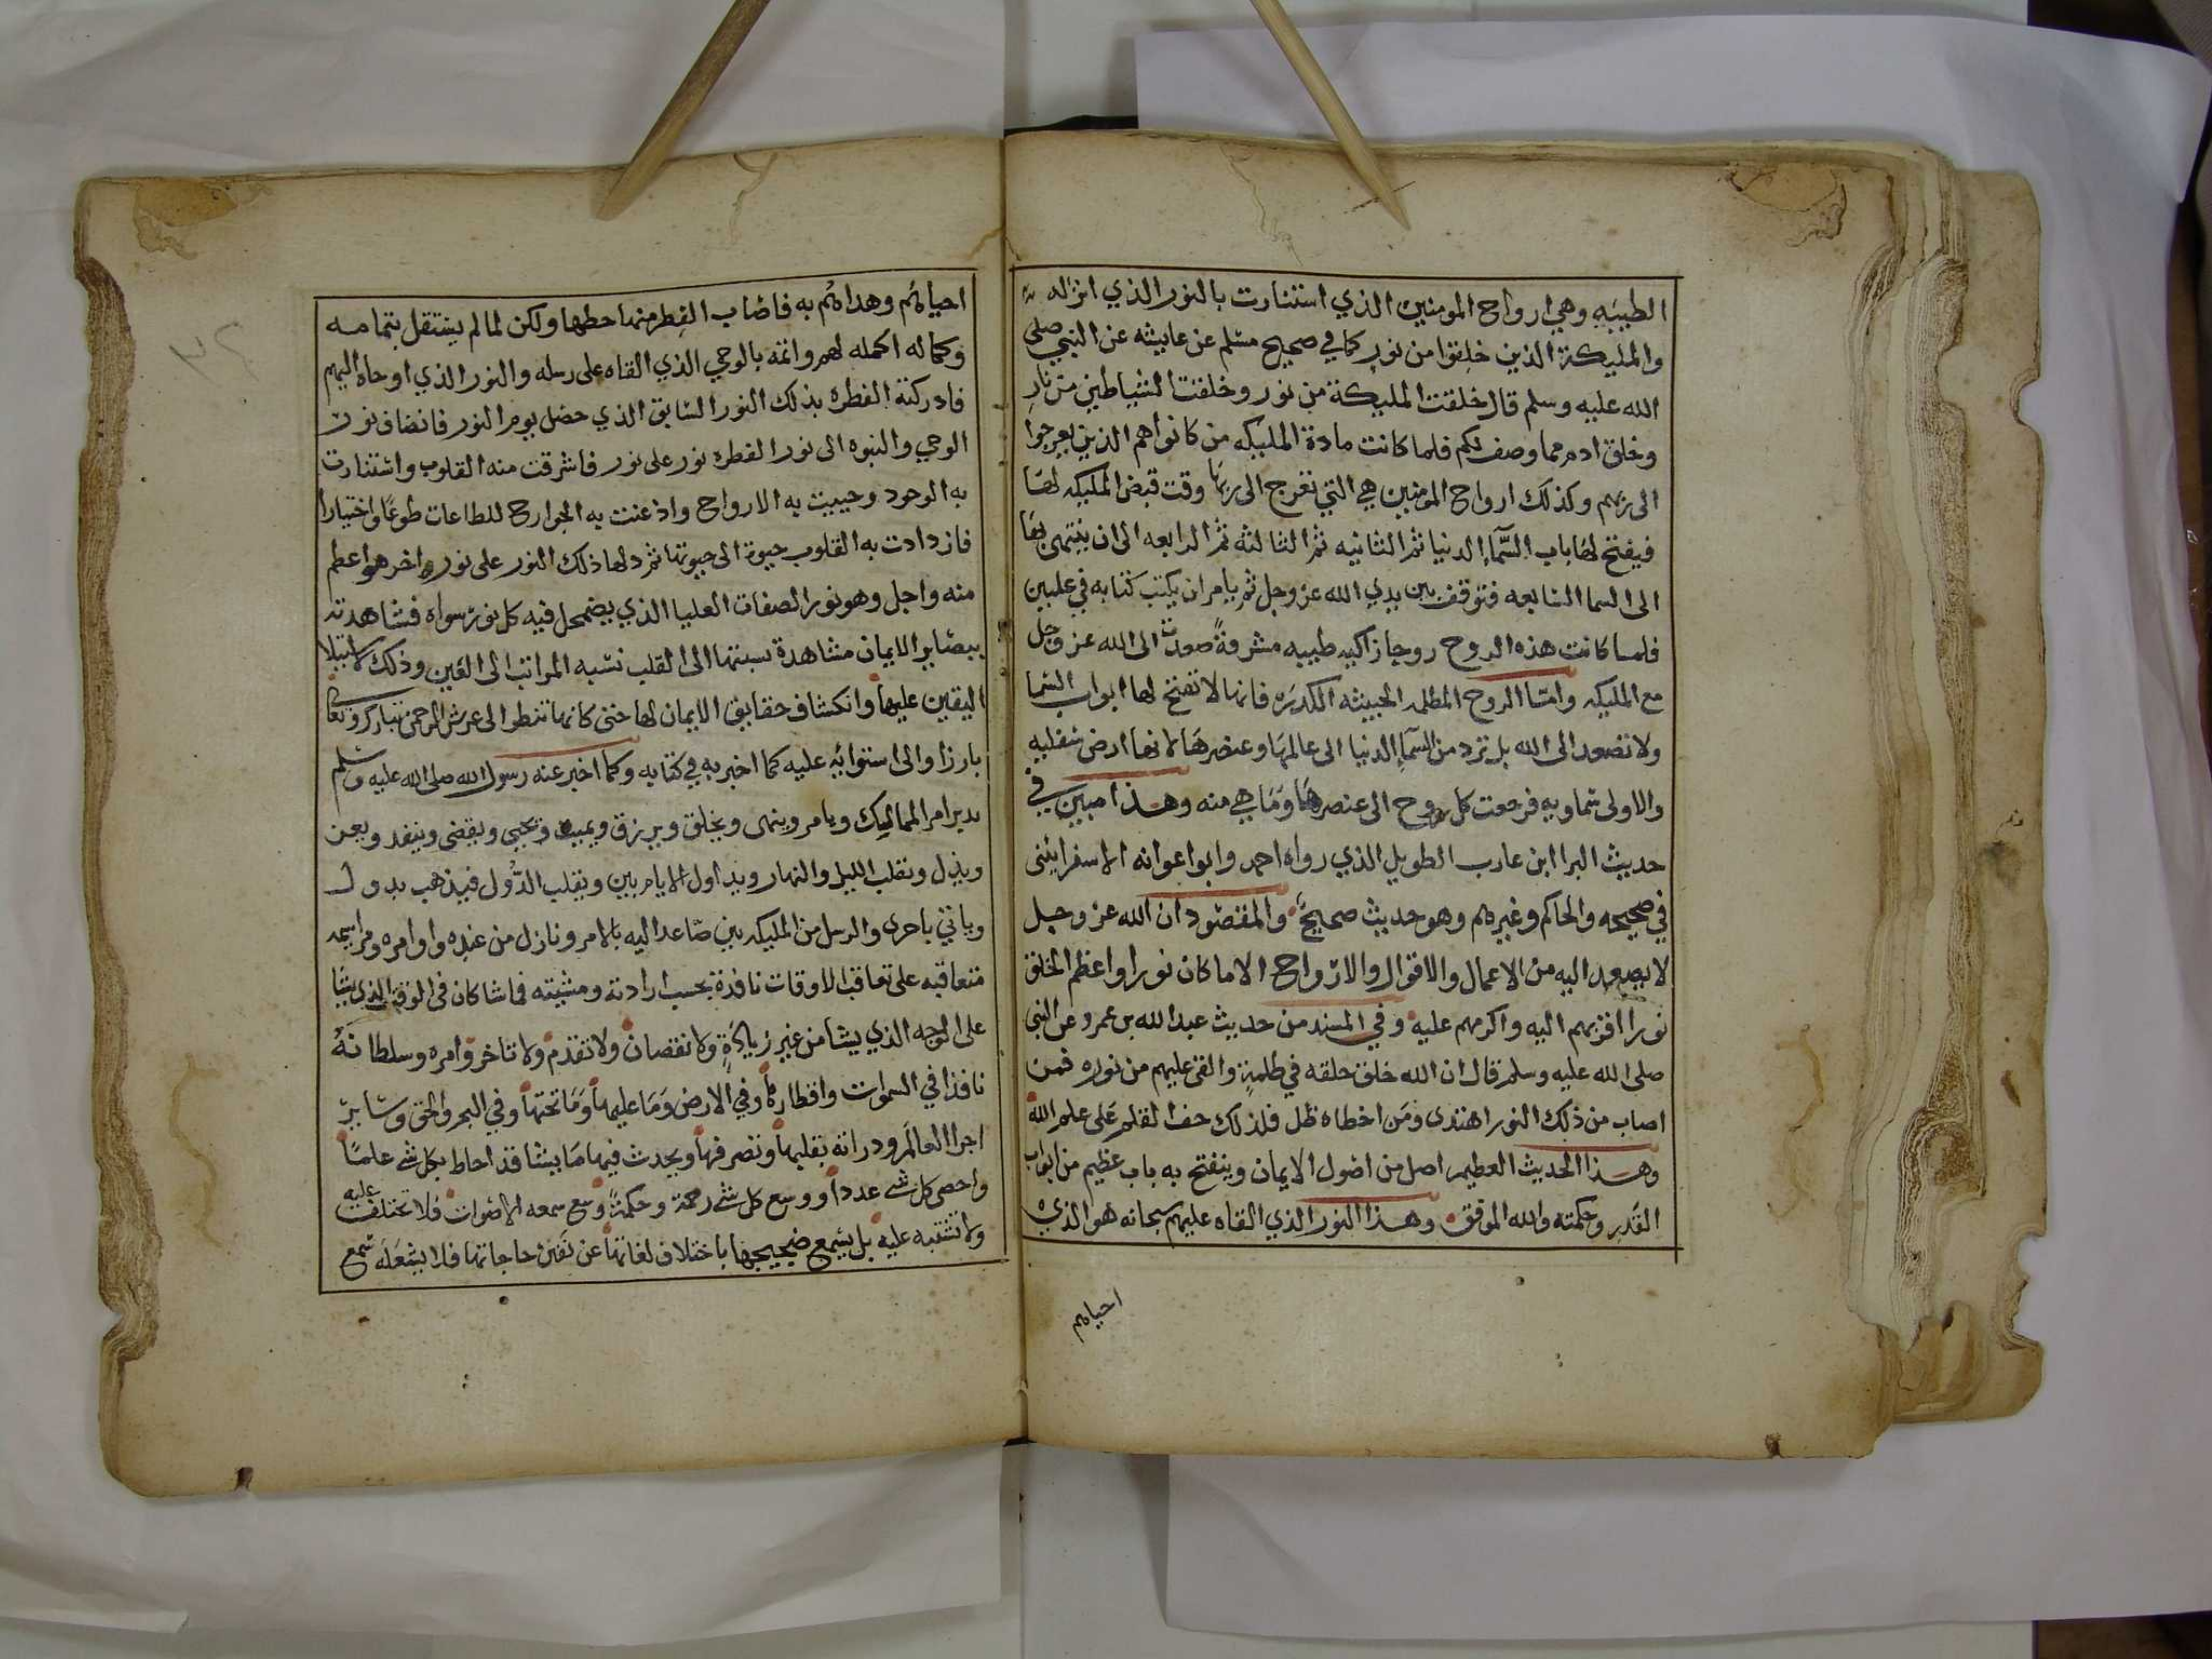 الطيبه وهي ارواح المومنين الذي استنارت بالنور الذي انزله
والمليكة الذين خلقوا من نور كما في صحيح مسلم عن عايشه عن النبي صلى
الله عليه وسلم قال خلقت المليكة من نور وخلقت الشياطين من نار
وخلق ادم مما وصف لكم فلما كانت مادة المليكه من كانوا هم الذين يعرجوا
الى ربهم وكذلك ارواح المومنين هي التي تعرج الى ربها وقت قبض المليكه لها
فيفتح لها باب السماء الدنيا ثم الثانيه ثم الثالثه ثم الرابعه الى ان ينتهى بها
الى السما السابعه فتوقف بين يدي الله عز وجل ثم يامر ان يكتب كتابه في عليين
فلما كانت هذه الروح روحا زاكيه طيبه مشرقة صعدت الى الله عز وجل
مع المليكه وامّا الروح المظلمه الخبيثه الكدره فانها لا تفتح لها ابواب السما
ولا تصعد الى الله بل ترد من السماء الدنيا الى عالمها وعنصرها لانها ارض سفليه
والاولى سماويه فرجعت كل روح الى عنصرها وما هي منه وهذا مبين في
حديث البرا ابن عازب الطويل الذي رواه احمد وابوا عوانه الاسفرايئنى
في صحيحه والحاكم وغيرهم وهو حديث صحيح والمقصود ان الله عز وجل
لا يصعد اليه من الاعمال والاقوال والارواح الا ما كان نورا واعظم الخلق
نورا اقربهم اليه واكرمهم عليه وفي المسند من حديث عبد الله بن عمرو عن النبي
صلى الله عليه وسلم قال ان الله خلق خلقه في ظلمة والقى عليهم من نوره فمن
اصاب من ذلك النور اهتدى ومن اخطاه ظل فلذلك جف القلم على علم الله
وهذا الحديث العظيم اصل من اصول الايمان وينفتح به باب عظيم من ابواب
القدر وحكمته والله الموفق وهذا النور الذي القاه عليهم سبحانه هو الذي
احياهم
احياهم وهداهم به فاصاب الفطر منها حظها ولكن لما لم يستقل بتمامه
وكماله اكمله لهم واتمه بالوحي الذي القاه على رسله والنور الذي اوحاه اليهم
فادركته الفطره بذلك النور السابق الذي حصل يوم النور فانضاف نور
الوحي والنبوه الى نور الفطره نور على نور فاشرقت منه القلوب واستنارت
به الوجود وحييت به الارواح واذعنت به الجوارح للطاعات طوعًا واختيارا
فازدادت به القلوب حيوة الى حيوتها ثم دلها ذلك النور على نور اخر هو اعظم
منه واجل وهو نور الصفات العليا الذي يضمحل فيه كل نور سواه فشاهدته
ببصاير الايمان مشاهدة نسبتها الى القلب نسبه المراتب الى العين وذلك لاستيلا
اليقين عليها وانكشاف حقايق الايمان لها حتى كانها تنظر الى عرش الرحمن تبارك وتعالى
بارزا والى استوائه عليه كما اخبر به في كتابه وكما اخبر عنه رسول الله صلى الله عليه وسلم
يدبر امر الممالك ويامر وينهى ويخلق ويرزق ويميت ويحيى ويقضي وينفد ويعز
ويذل ويقلب الليل والنهار ويداول الايام بين ويقلب الدول فيذهب بدول
وياتي باخرى والرسل من المليكه بين صاعد اليه بالامر ونازل من عنده واوامره ومراسيمه
متعاقبه على تعاقب الاوقات نافذة بحسب ارادته ومشيته فما شا كان في الوقت الذي يشا
على الوجه الذي يشا من غير زيادة ولا نقصان ولا تقدم ولا تاخر وامره وسلطانه
نافذا في السموات واقطارها وفي الارض وما عليها وما تحتها وفي البحر والجو وسائر
اجزا العالم وذراته يقلبها وتصرفها ويحدث فيها ما يشا قد احاط بكل شي علمًا
واحصى كل شي عددا ووسع كل شي رحمة وحكمة وسع سمعه الاصوات فلا تختلف عليه
ولا تشتبه عليه بل يسمع ضجيجها باختلاف لغاتها عن تفنن حاجاتها فلا يشغله سمع